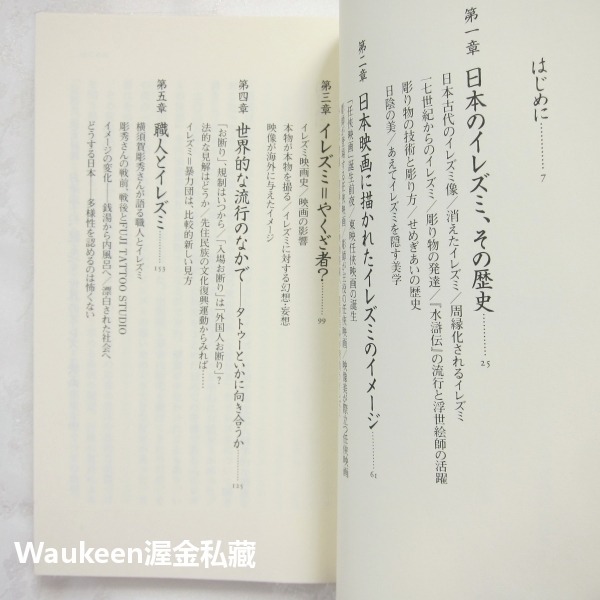 はじめに………7
第一章 日本のイレズミ、その歴史………25
日本古代のイレズミ像／消えたイレズミ／周縁化されるイレズミ
一七世紀からのイレズミ／彫り物の発達／『水滸伝』の流行と浮世絵師の活躍
彫り物の技術と彫り方／せめぎあいの歴史
日陰の美／あえてイレズミを隠す美学
第二章 日本映画に描かれたイレズミのイメージ………61
「任俠映画」誕生前夜／東映任俠映画の誕生
第三章 イレズミ＝やくざ者？………99
イレズミ映画史／映画の影響
本物が本物を撮る／イレズミに対する幻想・妄想
映像が海外に与えたイメージ
第四章 世界的な流行のなかで――タトゥーといかに向き合うか――………125
「お断り」、規制はいつから／「入場お断り」は「外国人お断り」？
法的な見解はどうか／先住民族の文化復興運動からみれば……
イレズミ＝暴力団は、比較的新しい見方
第五章 職人とイレズミ………155
横須賀彫秀さんが語る職人とイレズミ
彫秀さんの戦前、戦後とFUJI TATTOO STUDIO
イメージの変化――銭湯から内風呂へ／漂白された社会へ
どうする日本――多様性を認めるのは怖くない
Waukeen渥金私藏